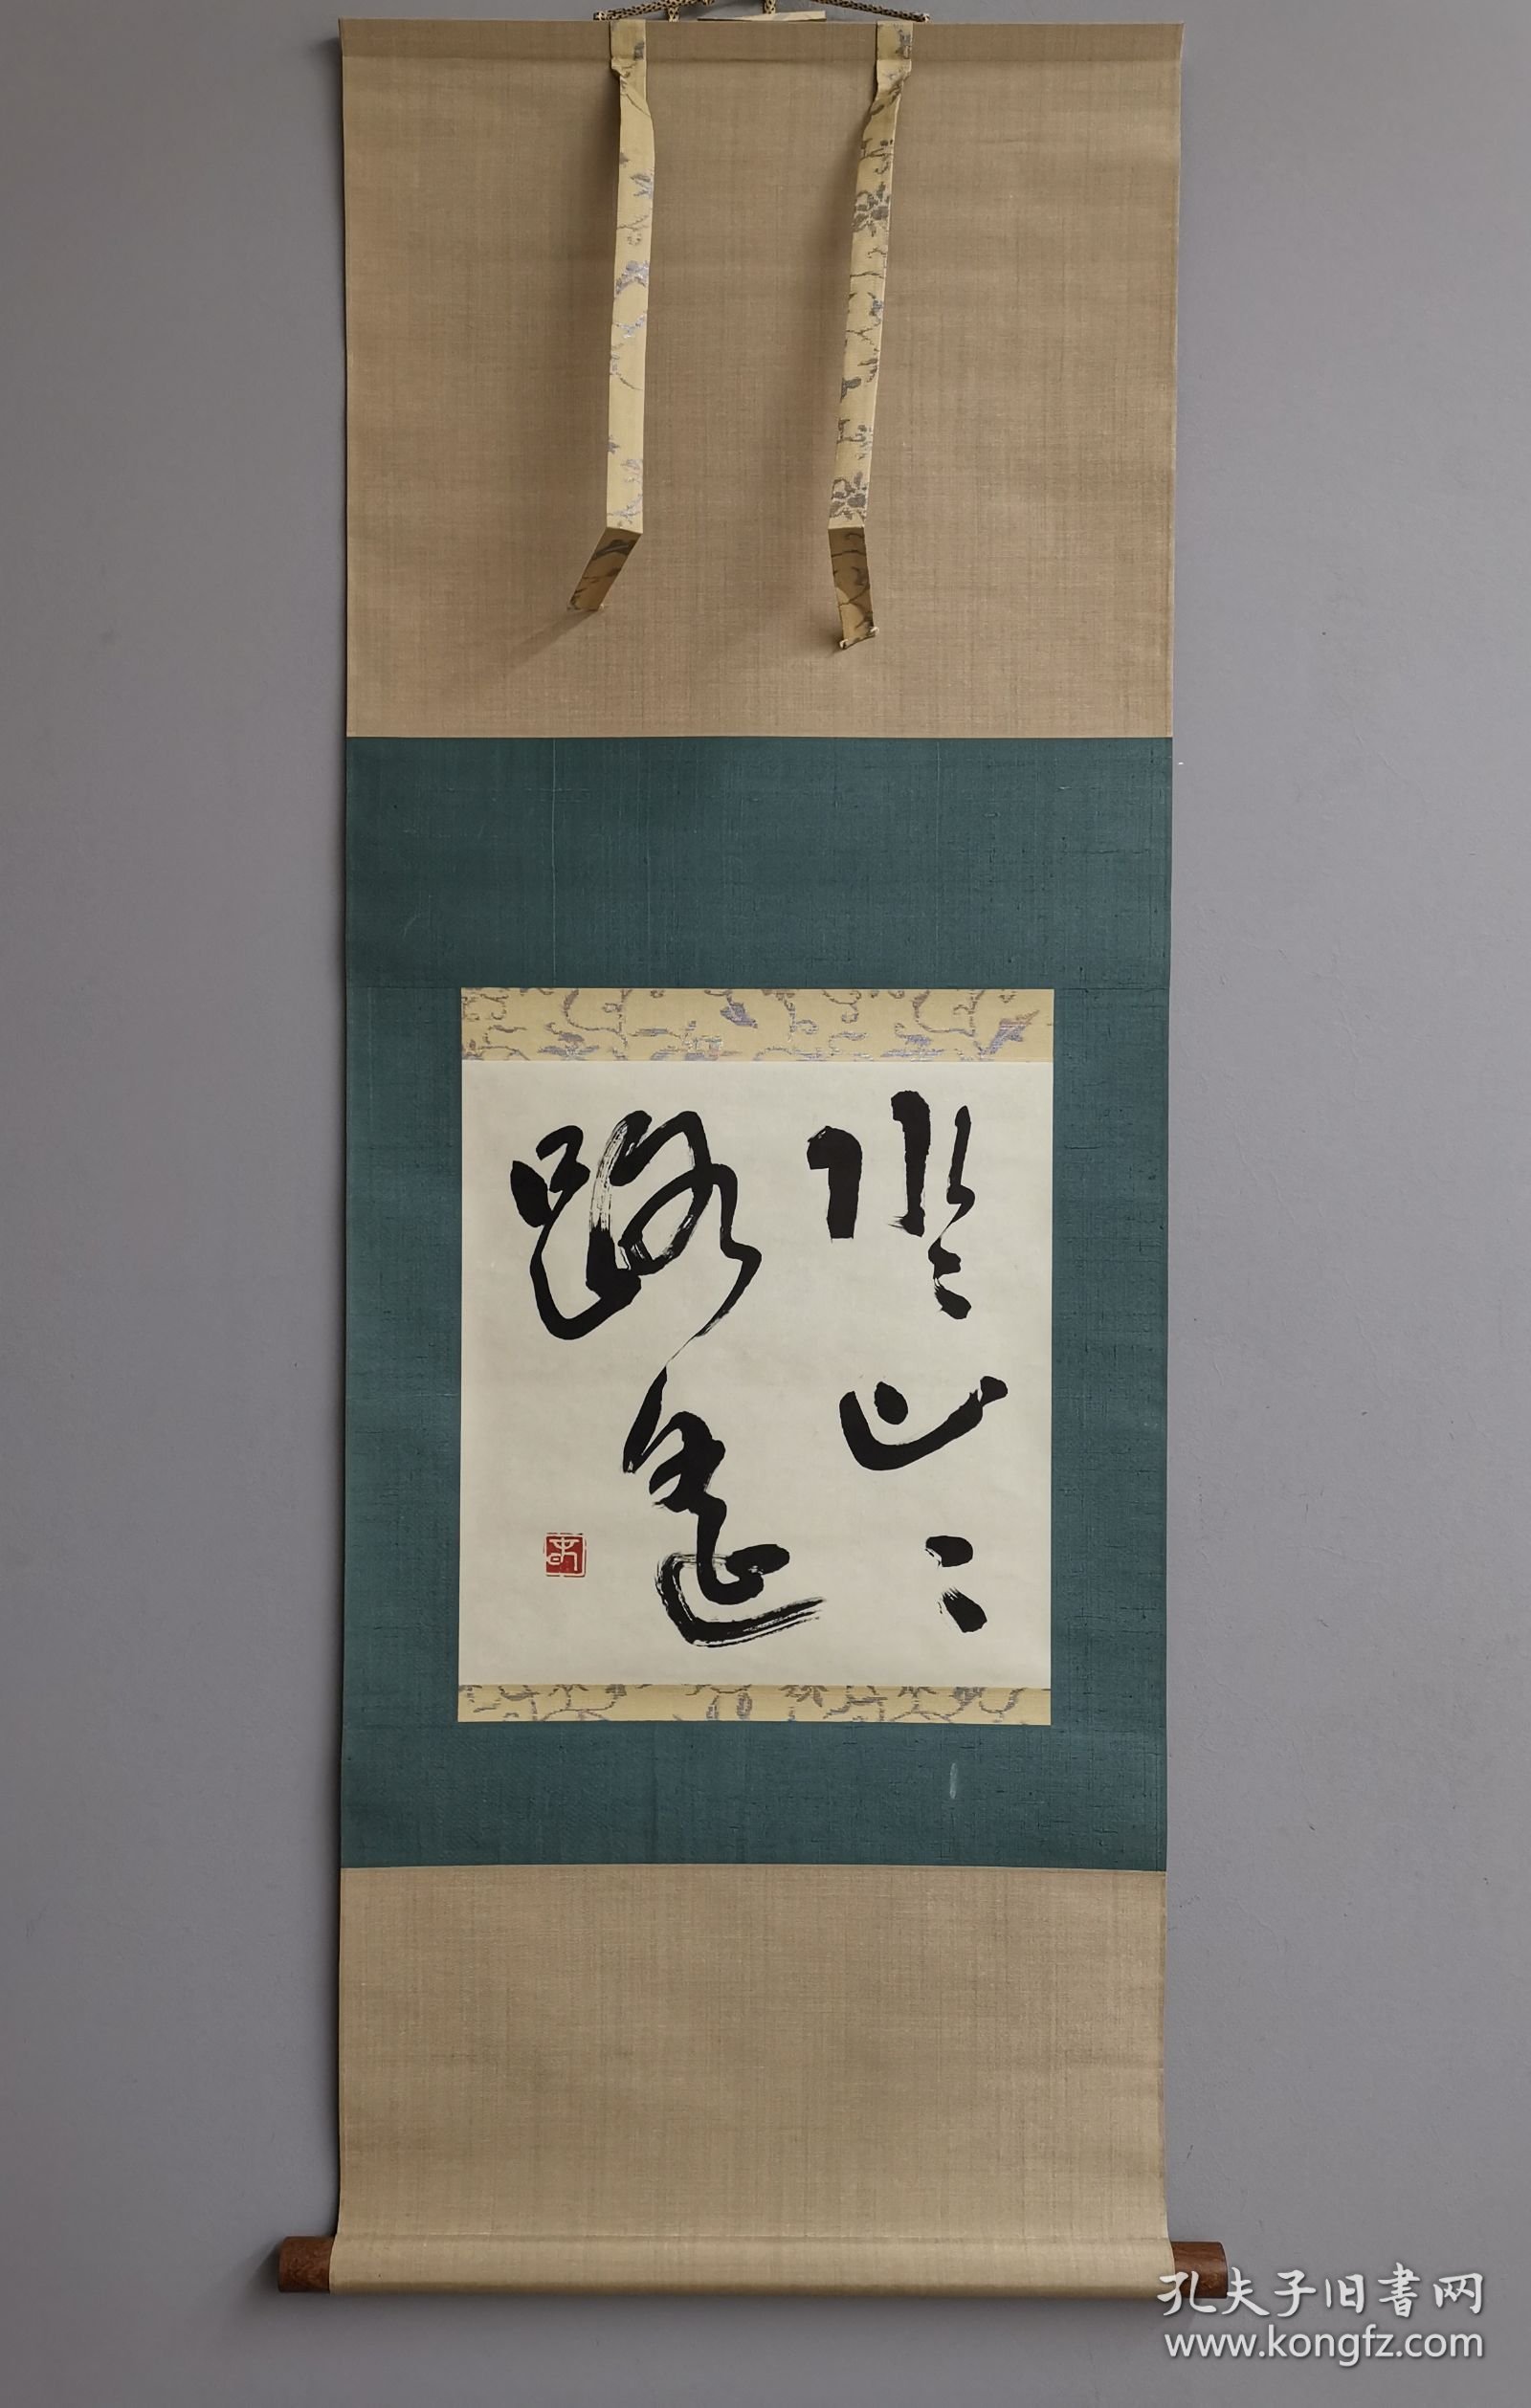 水々山々
路遥
孔夫子旧書网
www.kongfz.com